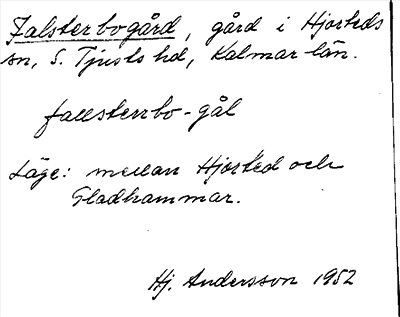 Falsterbogård, gård i Hjorteds
sn, S. Tjusts hd, Kalmar län.
fallsterrbo-gål
Läge: mellan Hjorted och
Gladhammar.
Hj. Andersson 1952